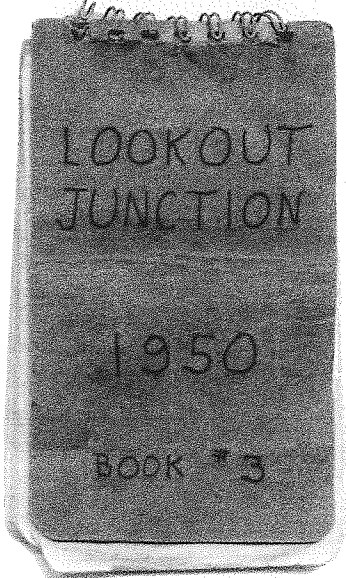 LOOKOUT
JUNCTION
1950
BOOK #3